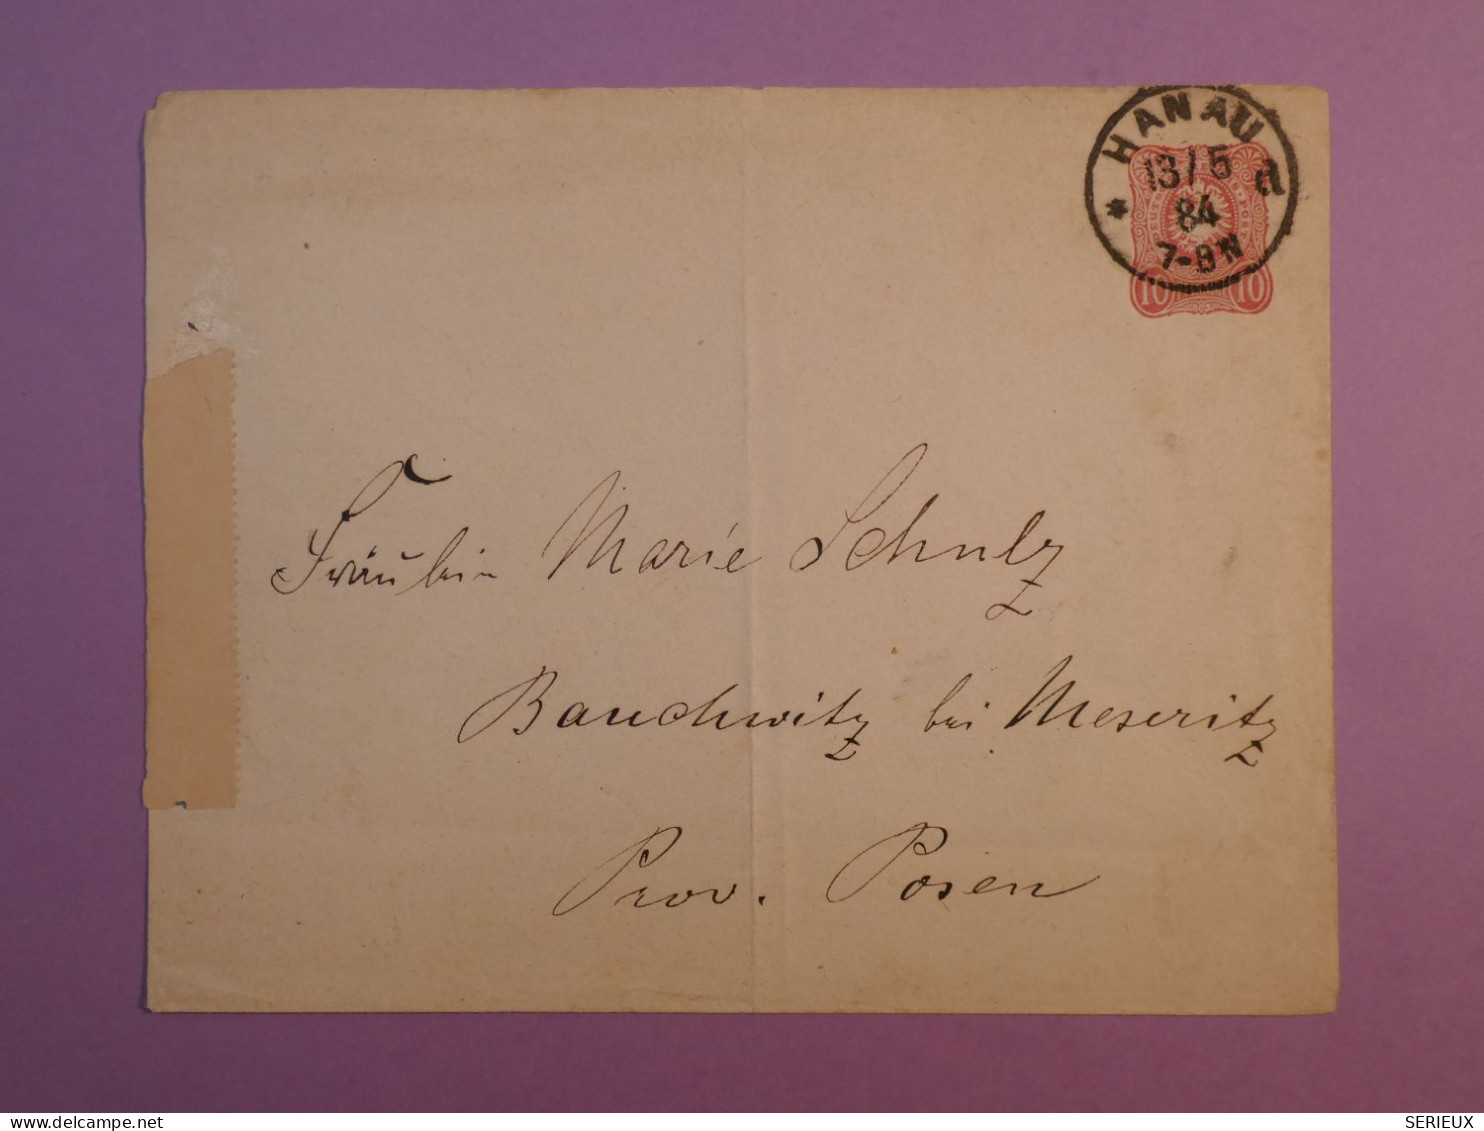 HANAU
13/5
84
7-8N
* a
10 10
Fräulein Marie Schulz
Bauchwitz bei Meseritz
Prov. Posen
www.delcampe.net
SERIEUX